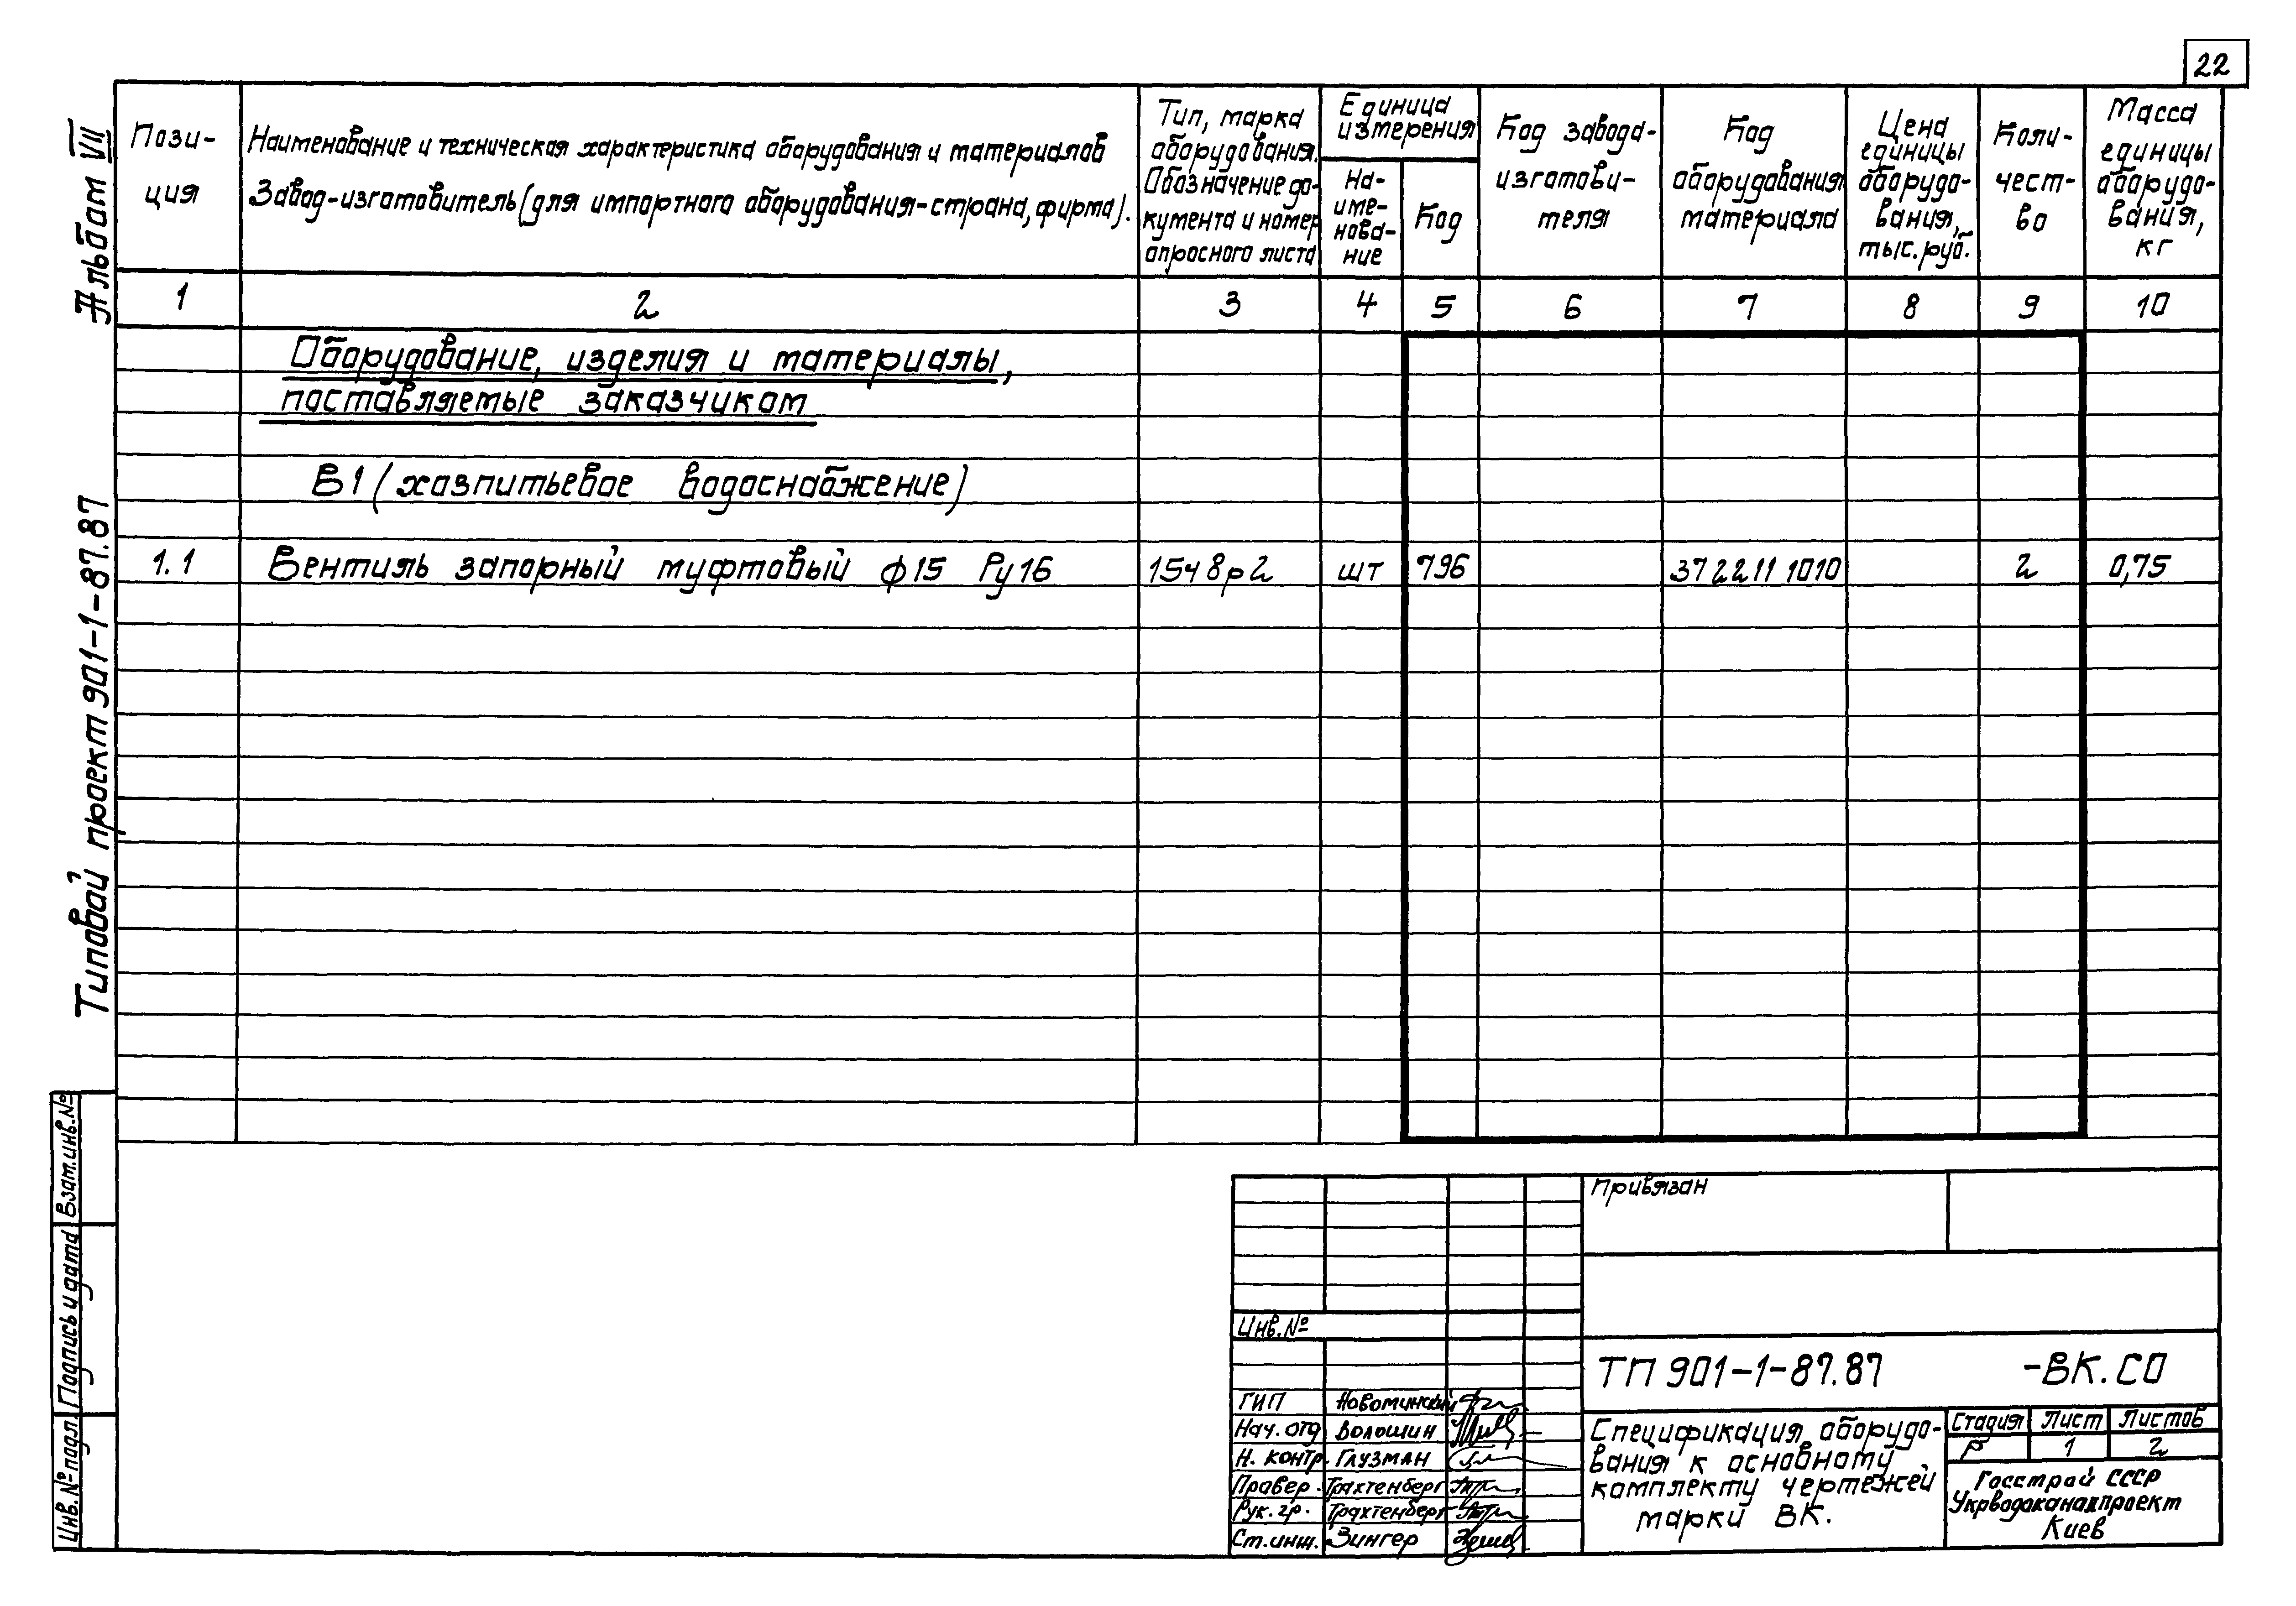 22
Альбом VII
Типовой проект 901-1-87.87
Пози-
ция
Наименование и техническая характеристика оборудования и материалов
Завод-изготовитель (для импортного оборудования-страна, фирма).
Тип, марка
оборудования.
Обозначение до-
кумента и номер
опросного листа
Единица
измерения
На-
име-
нова-
ние
Код
Код завода-
изготови-
теля
Код
оборудования
материала
Цена
единицы
оборудо-
вания,
тыс. руб.
Коли-
чест-
во
Масса
единицы
оборудо-
вания,
кг
1 2 3 4 5 6 7 8 9 10
Оборудование, изделия и материалы,
поставляемые заказчиком
В1 (хозпитьевое водоснабжение)
1.1 Вентиль запорный муфтовый ф15 Ру16 15ч8р2 шт 796 37 22 11 1010 2 0,75
Взам.инв.№
Подпись и дата
Инв.№ подл.
Привязан
Инв.№
ТП 901-1-87.87 -ВК.СО
ГИП Новоминский
Нач. отд Волошин
Н. контр. Глузман
Провер. Трахтенберг
Рук. гр. Трахтенберг
Ст. инж. Зингер
Спецификация оборудо-
вания к основному
комплекту чертежей
марки ВК.
Стадия Лист Листов
Р 1 2
Госстрой СССР
Укрводоканалпроект
Киев